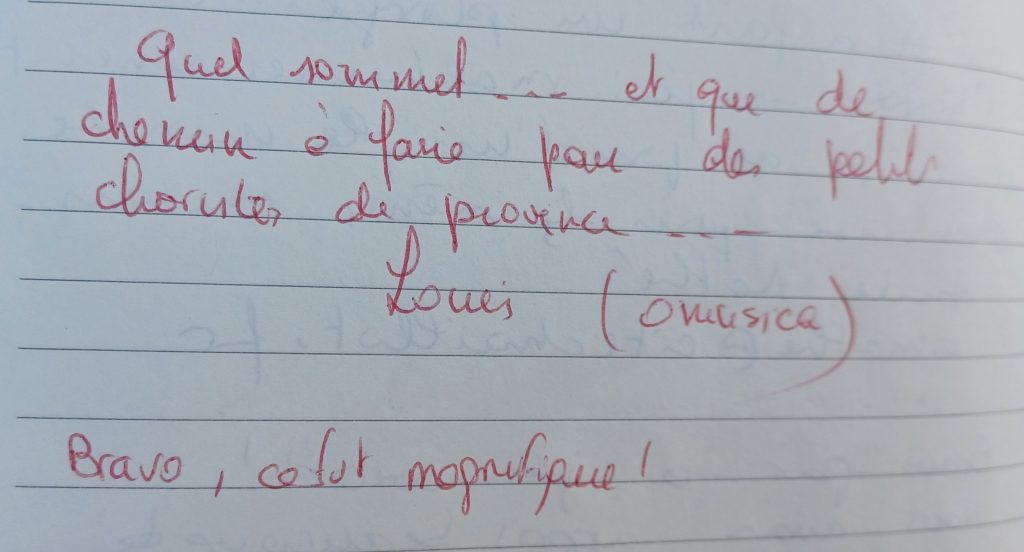 Quel sommet ... et que de
chemin à faire pour des petits
chorales de province ...
Louis (omusica)
Bravo, ce fut magnifique !